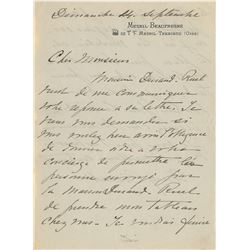 Dimanche 24 Septembre
MESNIL-BEAUFRESNE
PAR LE MESNIL-THERIBUS (OISE)
Cher Monsieur
Monsieur Durand-Ruel
vient de me communiquer
votre réponse à sa lettre. Je
vous demander si
vous voulez bien avoir l'obligeance
de donner ordre à votre
concierge de permettre la
personne envoyé, par
la Maison Durand Ruel
de prendre mon tableau
chez vous. Je voudrais